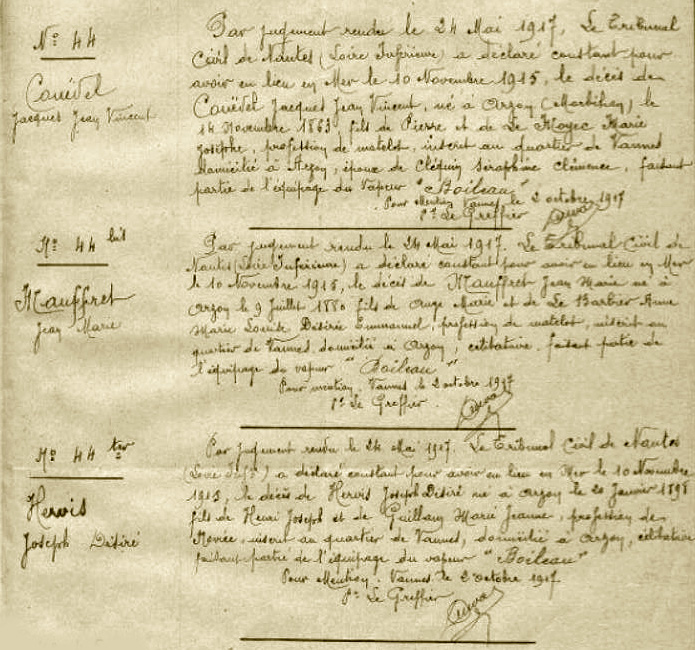 N: 44
Canével
Jacques Jean Vincent
Par jugement rendu le 24 Mai 1917, Le Tribunal
Civil de Nantes (Loire Inférieure) a déclaré constant pour
avoir eu lieu en Mer le 10 Novembre 1915, le décès de
Canével Jacques Jean Vincent, né à Arzon (Morbihan) le
14 Novembre 1863, fils de Pierre et de Le Moyec Marie
Josèphe, profession de matelot, inscrit au quartier de Vannes
domicilié à Arzon, époux de Cléquin Séraphine Clémence, faisant
partie de l'équipage du Vapeur "Boileau"
Pour Mention Vannes, le 2 octobre 1917
Pr Le Greffier
N: 44 bis
Mauffret
Jean Marie
Par jugement rendu le 24 Mai 1917. Le Tribunal Civil de
Nantes (Loire Inférieure) a déclaré constant pour avoir eu lieu en Mer
le 10 Novembre 1915, le décès de Mauffret Jean Marie né à
Arzon le 9 Juillet 1880 fils de Ange Marie et de Le Barbier Anne
Marie Louise Désirée Emmanuel, profession de matelot, inscrit au
quartier de Vannes, domicilié à Arzon, célibataire, faisant partie de
l'équipage du vapeur "Boileau"
Pour mention. Vannes le 2 octobre 1917
Pr Le Greffier.
N: 44 ter
Hervis
Joseph Désiré
Par jugement rendu le 24 Mai 1917. Le Tribunal Civil de Nantes
(Loire Infre) a déclaré constant pour avoir eu lieu en Mer le 10 Novembre
1915, le décès de Hervis Joseph Désiré né à Arzon le 20 Janvier 1898
fils de Henri Joseph et de Guillam Marie Jeanne, profession de
Novice, inscrit au quartier de Vannes, domicilié à Arzon, célibataire
faisant partie de l'équipage du vapeur "Boileau"
Pour Mention. Vannes le 2 octobre 1917.
Pr Le Greffier